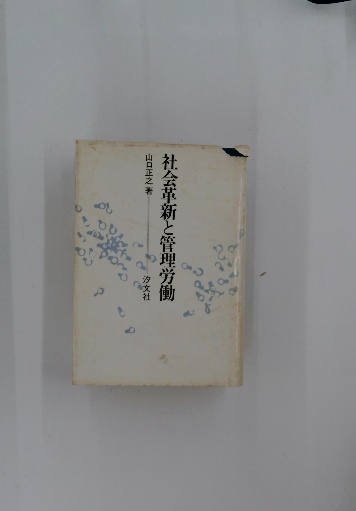 社会革新と管理労働
山口正之 著
汐文社